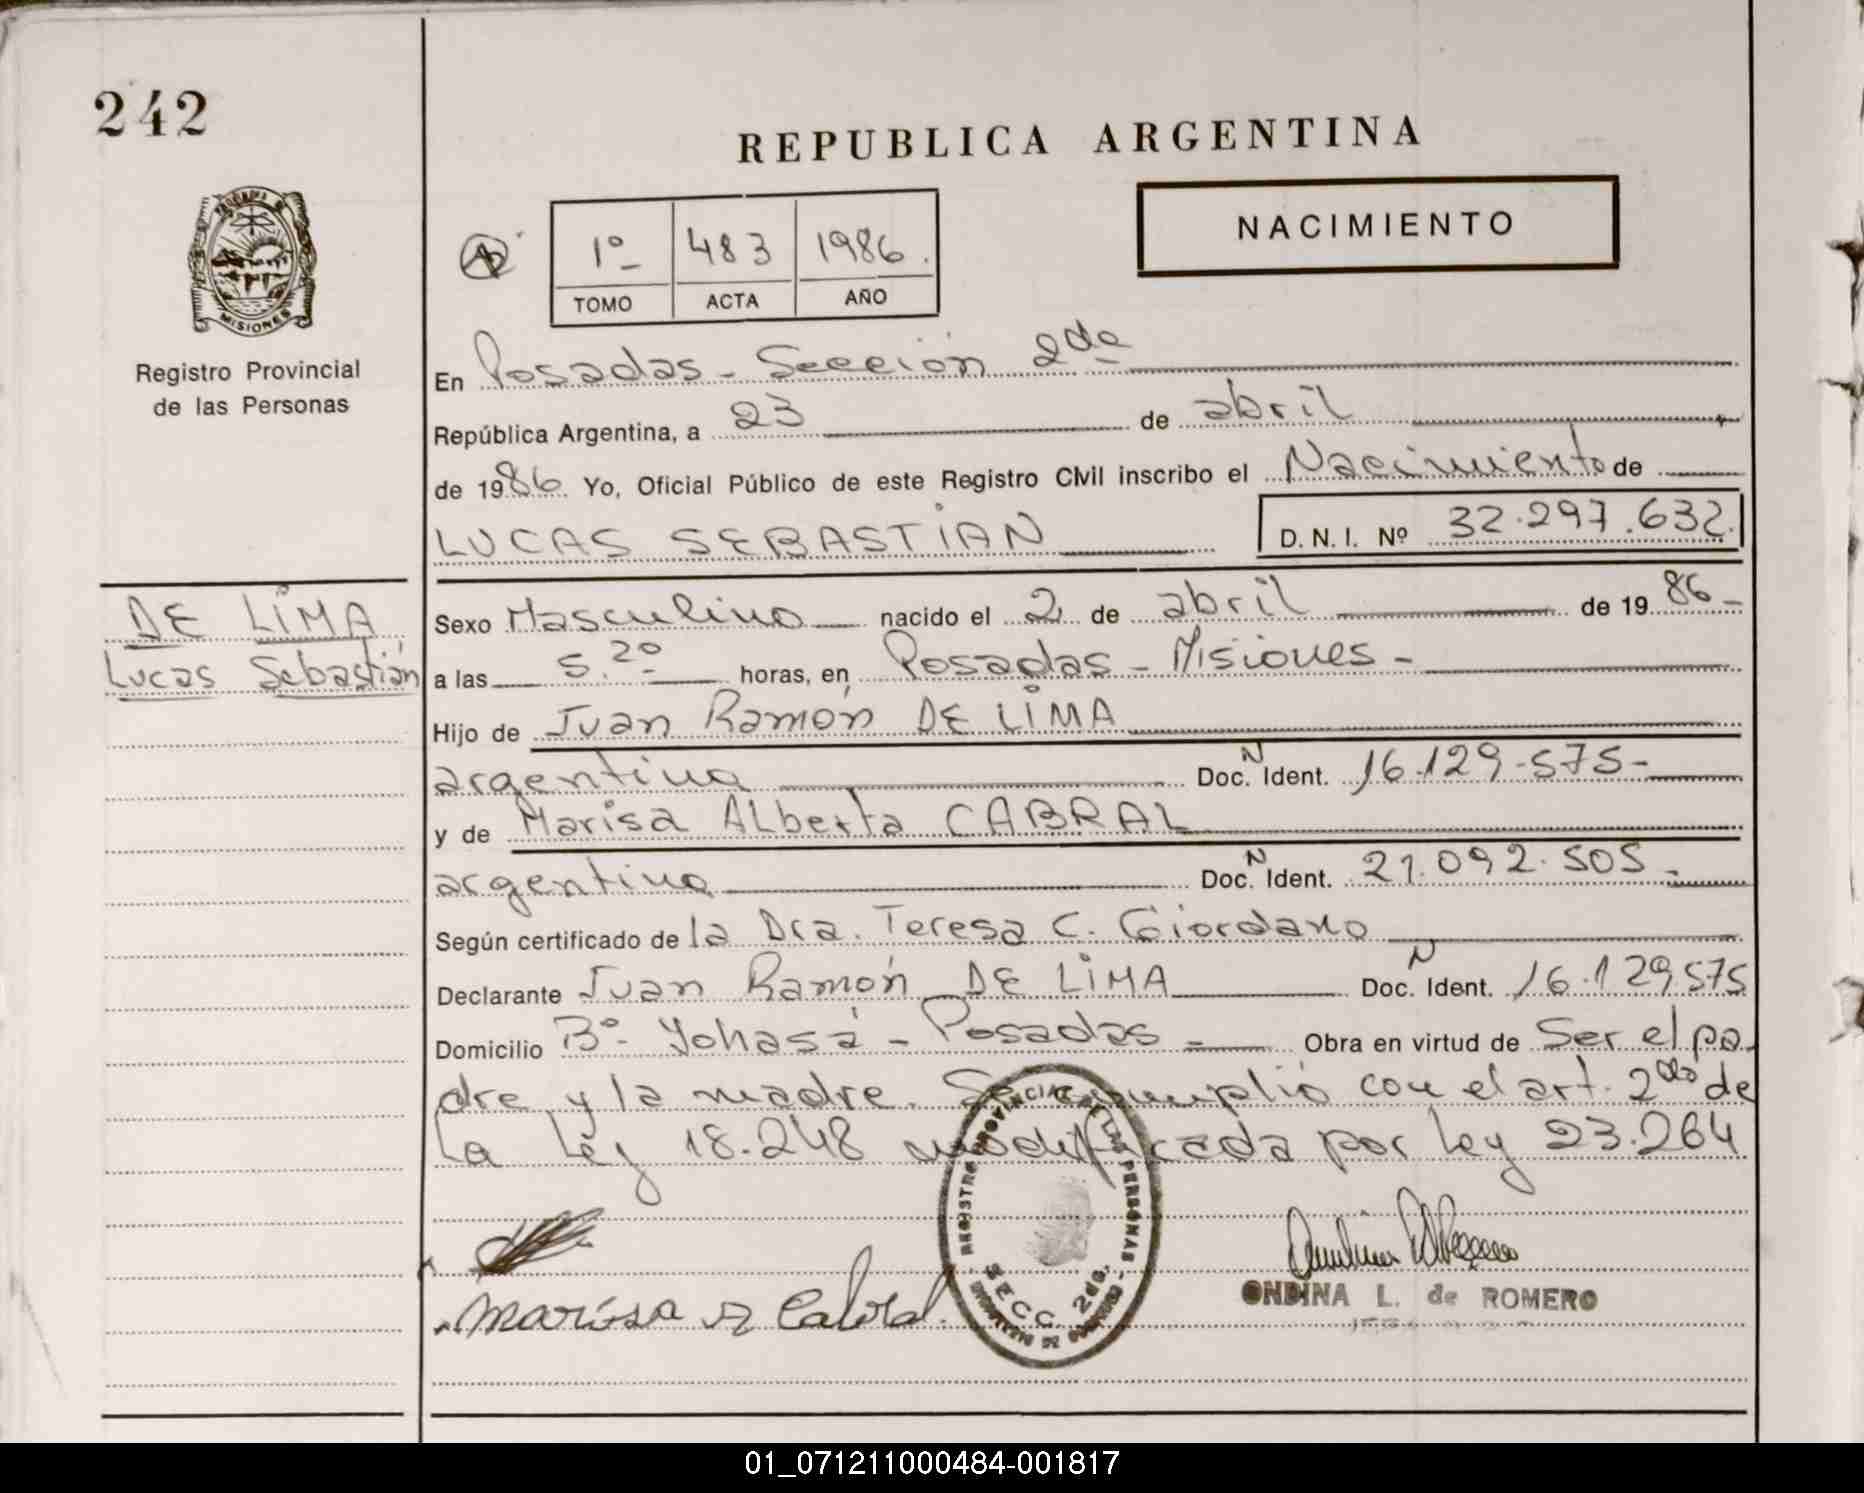 242
REPUBLICA ARGENTINA
NACIMIENTO
1º 483 1986.
TOMO ACTA AÑO
MISIONES
Registro Provincial
de las Personas
En Posadas - Sección 2da
República Argentina, a 23 de abril
de 1986. Yo, Oficial Público de este Registro Civil inscribo el Nacimiento de
LUCAS SEBASTIAN D.N.I. Nº 32.297.632.
DE LIMA
Lucas Sebastián
Sexo Masculino nacido el 2 de abril de 1986-
a las 5.20 horas, en Posadas - Misiones -
Hijo de Juan Ramón DE LIMA
argentino Doc. N Ident. 16.129.575-
y de Marisa Alberta CABRAL
argentina Doc. N Ident. 21.092.505-
Según certificado de la Dra. Teresa C. Giordano
Declarante Juan Ramón DE LIMA Doc. N Ident. 16.129.575
Domicilio Bº Yohasá - Posadas - Obra en virtud de Ser el pa-
dre y la madre. Se cumplió con el art. 2do de
la Ley 18.248 modificada por Ley 23.264
REGISTRO PROVINCIAL DE LAS PERSONAS
SECC. 2da.
Marisa Cabral.
ONDINA L. de ROMERO
01_071211000484-001817